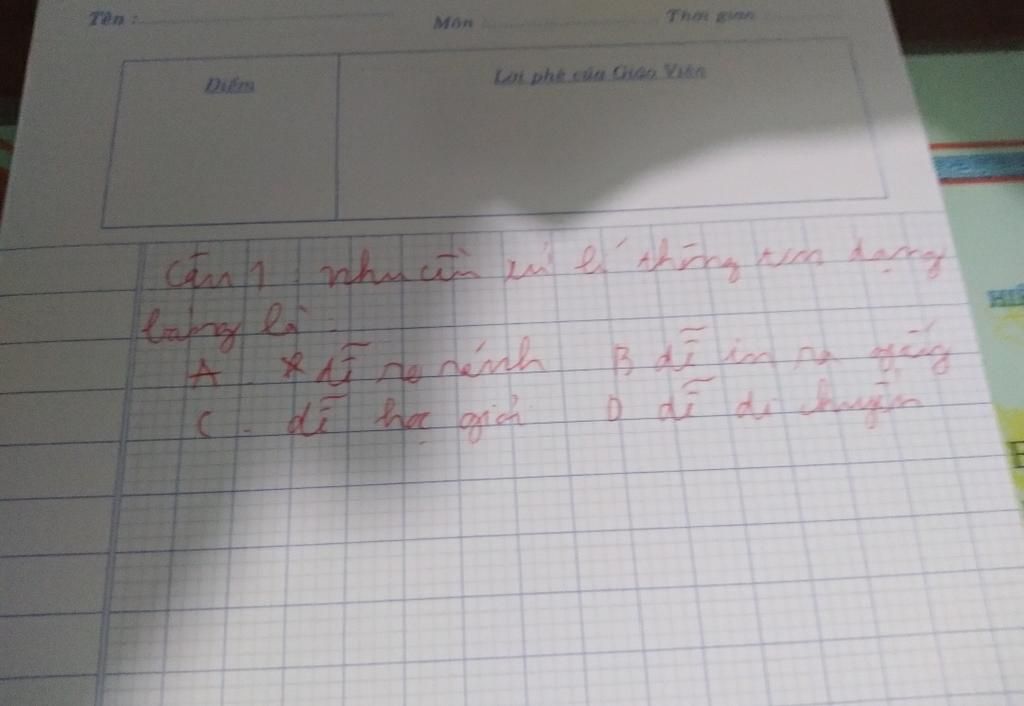 Tên : Môn Thời gian
Điểm Lời phê của Giáo Viên
Câu 1 nhu cầu xử lí thông tin dạng
bảng là
A. dễ so sánh B dễ in ra giấy
C. dễ học D dễ di chuyển